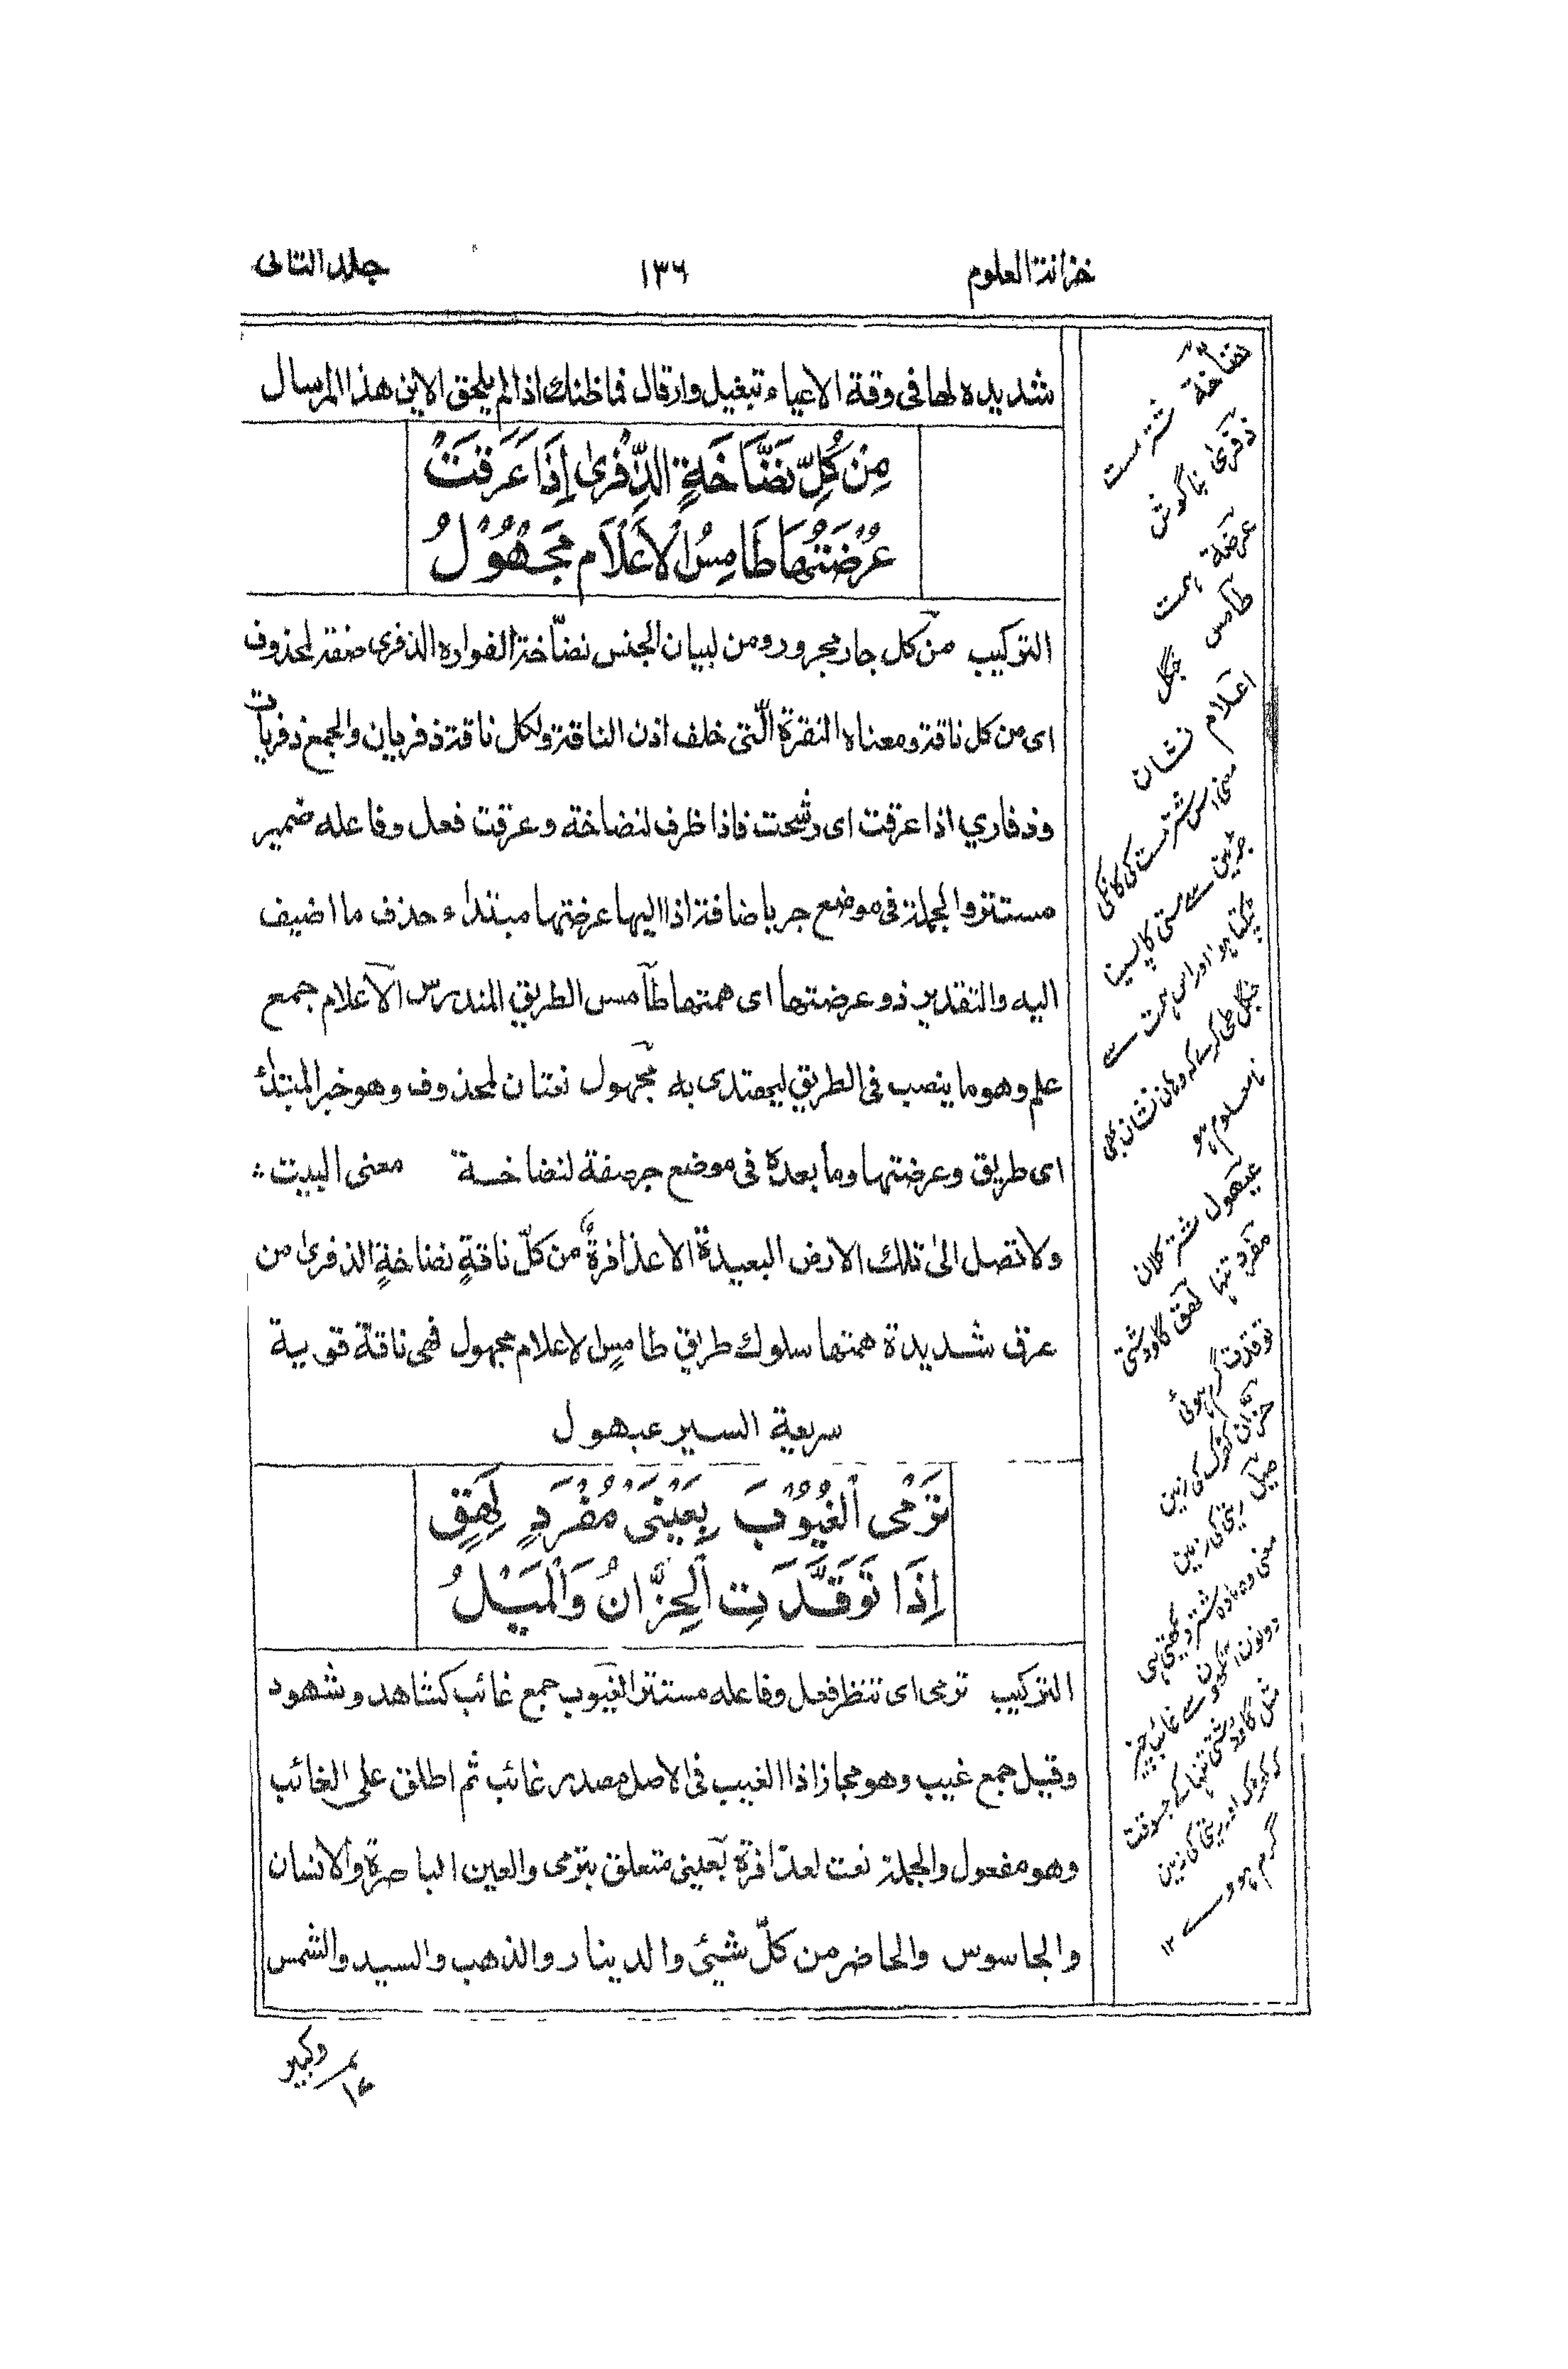 خزانة العلوم
١٣٦
جلد الثانى
شديده لها فى وقة الاعياء تبغيل وارقال فما ظنك اذا لم يلحق الاين هذا المرسال
مِنْ كُلِّ نَضَّاخَةٍ الذِّفْرىٰ اِذَا عَرِقَتْ
عُرْضَتُهَا طَامِسُ الْاَعْلَامِ مَجْهُوْلُ
التركيب من كل جار مجرور ومن لبيان الجنس نضّاخة الفواره الذفرى صفة لمحذوف
اى من كل ناقة ومعناه النقرة الّتى خلف اذن الناقة ولكل ناقة ذفريان والجمع ذفريات
وذفاري اذا عرقت اى رشحت فاذا ظرف لنضاخة وعرقت فعل وفاعله ضمير
مستتر والجملة فى موضع جر باضافة اذا اليها عرضتها مبتداء حذف ما اضيف
اليه والتقدير ذو عرضتها اى همتها طامس الطريق المندرس الاعلام جمع
علم وهو ما ينصب فى الطريق ليهتدى به مجهول نعتان لمحذوف وهو خبر المبتدأ
اى طريق وعرضتها وما بعده فى موضع جر صفة لنضاخة معنى البيت
ولا تصل الىٰ تلك الارض البعيدة الا عذافرةٌ من كلّ ناقةٍ نضاخةٍ الذفرىٰ من
عرق شديدة همتها سلوك طريق طامسٍ لاعلام مجهول فهى ناقة قوية
سريعة السير عبهول
تَرْمِى الْغُيُوْبَ بِعَيْنَىْ مُفْرَدٍ لَهِقٍ
اِذَا تَوَقَّدَتِ الْحِزَّانُ وَالْمَيْلُ
التركيب ترمى اى تنظر فعل وفاعله مستتر الغيوب جمع غائب كشاهد وشهود
وقيل جمع غيب وهو مجاز اذا الغيب فى الاصل مصدر غائب ثم اطلق على الغائب
وهو مفعول والجملة نعت لعذافرة بعينى متعلق بترمى والعين الباصرة والانسان
والجاسوس والحاضر من كلّ شيئ والدينار والذهب والسيد والشمس
نضّاخة شتر مست
ذفرىٰ بناگوش
عرضة ہمت
طامس جنگل
اعلام نشان
معنى اس شتر مست كى كان كى
جڑين سے مستى كا پسينا
ٹپكتا ہو اور اس ہمت سے
جنگل طى كرے كہ وہان نشان بهى
نا معلوم ہو
عيهول شتر كلان
مفرد تنہا لهق گاو دشتى
توقدت گرم ہوئى
حزان كنكر كى زمين
ميل ريتى كى زمين
معنى وه ماده شتر ديكهتى ہى
دونون آنكهون سے غائب چيز
مثل گاو دشتى تنہا كے جسوقت
كہ كنكر اور ريتى كى زمين
گرم ہووے ١٢